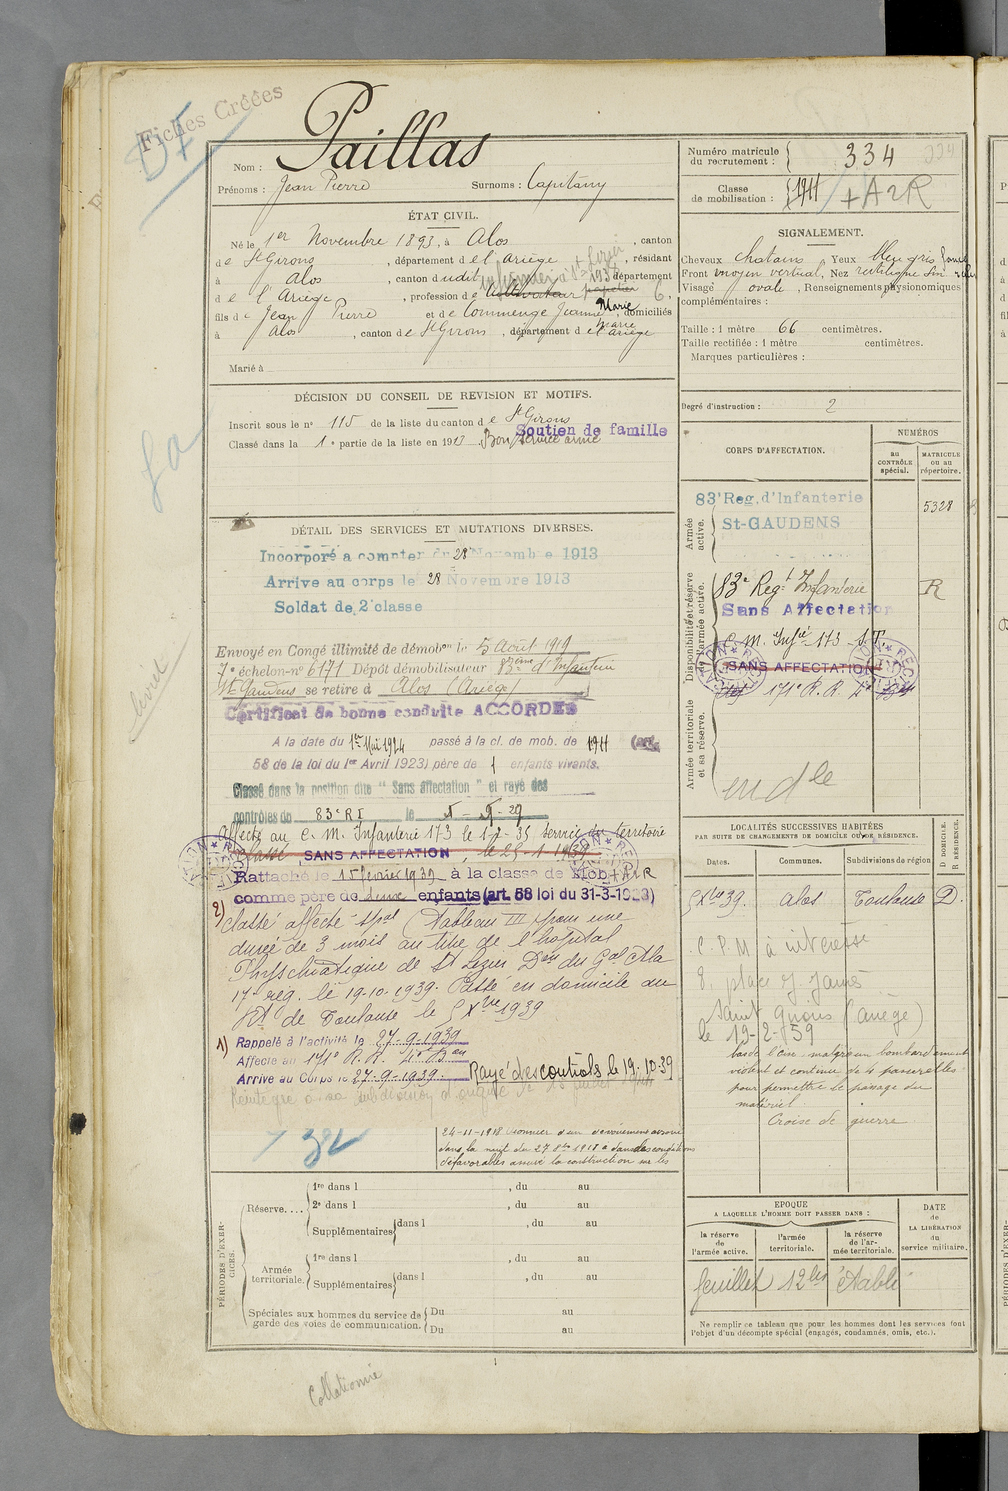 Fiches Créées
Nom : Paillas
Prénoms : Jean Pierre Surnoms : Capitany
ÉTAT CIVIL.
Né le 1er Novembre 1893, à Alos, canton
de St Girons, département de l'Ariège, résidant
à Alos, canton dudit 1936 département
de l'Ariège, profession de Cultivateur
fils de Jean Pierre et de Commenge Jeanne Marie, domiciliés
à Alos, canton de St Girons, département de l'Ariège
Marié à
DÉCISION DU CONSEIL DE REVISION ET MOTIFS.
Inscrit sous le n° 115 de la liste du canton de St Girons
Classé dans la 1e partie de la liste en 1913 Bon service armé
Soutien de famille
DÉTAIL DES SERVICES ET MUTATIONS DIVERSES.
Incorporé à compter du 28 Novembre 1913
Arrivé au corps le 28 Novembre 1913
Soldat de 2e classe
Envoyé en Congé illimité de démobon le 5 Août 1919
7e échelon-n° 6171 Dépôt démobilisateur 83eme d'Infanterie
St Gaudens se retire à Alos (Ariège)
Certificat de bonne conduite ACCORDÉ
A la date du 1er Mai 1924 passé à la cl. de mob. de 1911 (art.
58 de la loi du 1er Avril 1923) père de 1 enfants vivants.
Classé dans la position dite "Sans affectation" et rayé des
contrôles du 83e RI le
Affecté au C. M. Infanterie 173 le 1-7-35 service du territoire
Classé SANS AFFECTATION, le 25-1-1939
Rattaché le 15 février 1939 à la classe de Mob + A2R
comme père de deux enfants (art. 58 loi du 31-3-1928)
2) Classé affecté spal (Tableau III) pour une
durée de 3 mois au titre de l'hopital
Physchiatrique de St Lezier Don du Gal
17e rég. le 19-10-1939. Passé en domicile au
Rt de Toulouse le 5 Xbre 1939
1) Rappelé à l'activité le 27-9-1939
Affecté au 171e R.R. 4e Bon
Arrivé au Corps le 27-9-1939. Rayé des controles le 19-10-39
24-11-1918
dans la nuit du 27 8bre 1918 a dans des conditions
défavorables assuré la construction sur les
PÉRIODES D'EXERCICES.
Réserve.... 1re dans l , du au
2e dans l , du au
Supplémentaires dans l , du au
Armée territoriale. 1re dans l , du au
2e dans l , du au
Supplémentaires dans l , du au
Spéciales aux hommes du service de garde des voies de communication. Du au
Du au
Collationné
Numéro matricule du recrutement : 334
Classe de mobilisation : 1911 + A2R
SIGNALEMENT.
Cheveux chatains Yeux bleu gris
Front moyen vertical, Nez rectiligne
Visage ovale, Renseignements physionomiques
complémentaires :
Taille : 1 mètre 66 centimètres.
Taille rectifiée : 1 mètre centimètres.
Marques particulières :
Degré d'instruction : 2
CORPS D'AFFECTATION.
NUMÉROS
au CONTRÔLE spécial.
MATRICULE ou au répertoire.
Armée active.
83e Reg. d'Infanterie
St-GAUDENS
5328
Disponibilité et réserve de l'armée active.
83e Regt Infanterie R
Sans Affectation
C. M. Infie 173 S.T.
SANS AFFECTATION
171e R.R.
Armée territoriale et sa réserve.
LOCALITÉS SUCCESSIVES HABITÉES
PAR SUITE DE CHANGEMENTS DE DOMICILE OU DE RÉSIDENCE.
Dates. Communes. Subdivisions de région D DOMICILE. R RESIDENCE.
5 Xbre 39. Alos Toulouse D.
C. P. M. à intéressé
8, place J. Jaurès
Saint Girons (Ariège)
le 19-2-59
bords de l'Oise malgré un bombardement
violent et continu de 4 passerelles
pour permettre le passage du
matériel.
Croix de guerre.
EPOQUE
A LAQUELLE L'HOMME DOIT PASSER DANS :
la réserve de l'armée active.
l'armée territoriale.
la réserve de l'armée territoriale.
DATE de LA LIBÉRATION du service militaire.
feuillet 12 bis établi
Ne remplir ce tableau que pour les hommes dont les services font
l'objet d'un décompte spécial (engagés, condamnés, omis, etc.).